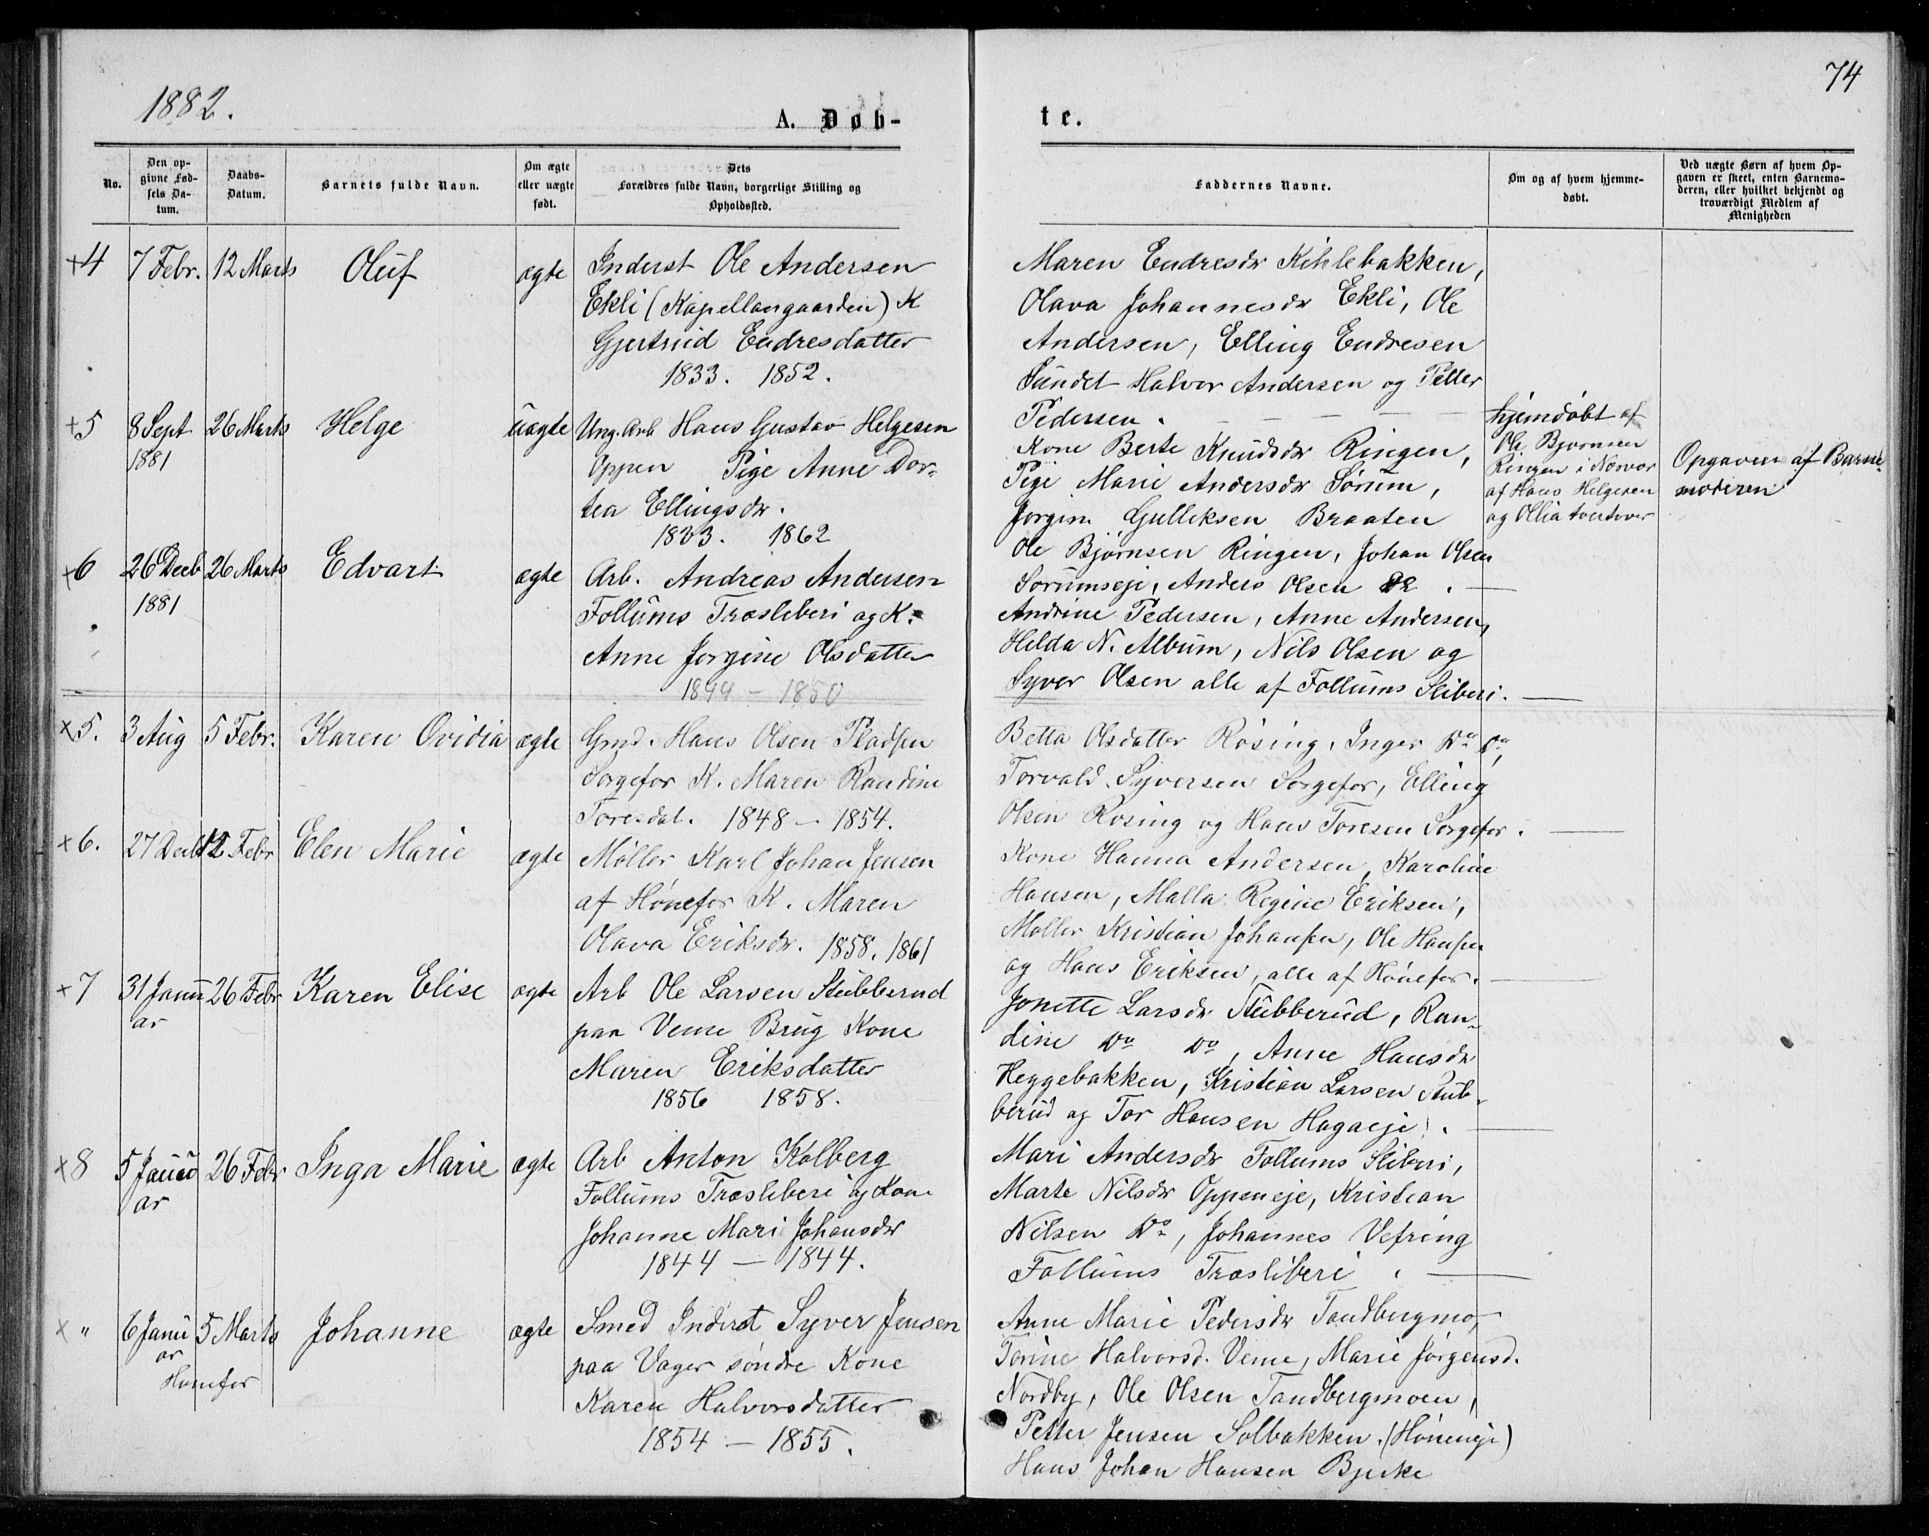 74
1882.
A. Døb-
te.
No.
Den op-
givne Fød-
sels Da-
tum.
Daabs-
Datum.
Barnets fulde Navn.
Om ægte
eller uægte
født.
Dets
Forældres fulde Navn, borgerlige Stilling og
Opholdssted.
Faddernes Navne.
Om og af hvem hjemme-
døbt.
Ved uægte Børn af hvem Op-
gaven er skeet, enten Barnemo-
deren, eller hvilket bekjendt og
troværdigt Medlem af
Menigheden
+4 7 Febr. 12 Marts Oluf ægte
Inderst Ole Andersen
Ekli (Kapellangaarden) K
Gjertrud Endresdatter
1833. 1852.
Maren Endresdr Kihlebakken,
Olava Johannesdr Ekli, Ole
Andersen, Elling Endresen
Sundet Halvor Andersen og Petter
Pedersen.
+5 8 Sept 26 Marts Helge uægte
1881
Ung. Arb Hans Gustav Helgesen
Oppen Pige Anne Dor-
tea Ellingsdr.
1833. 1862
Kone Berte Knudsdr Ringen,
Pige Marie Andersdr Sørum,
Jørgine Gulliksen Braaten
Ole Bjørnsen Ringen, Johan Olsen
Sørumseje, Anders Olsen
hjemdøbt af
Ole Bjørnsen
Ringen i Nærvær
af Hans Helgesen
og Ollia
Opgaven af Barne-
moderen
+6 26 Decb 26 Marts Edvart ægte
1881
Arb. Andreas Andersen
Follums Træsliberi og K.
Anne Jørgine Olsdatter
1844 - 1850
Andrine Pedersen, Anne Andersen,
Helda N. Album, Nils Olsen og
Syver Olsen alle af Follums Sliberi.
x5. 3 Aug 5 Febr. Karen Ovidia ægte
Gmd. Hans Olsen Pladsen
Sorgefor K. Maren Randine
Toresdat. 1848 - 1854.
Betta Olsdatter Rösing, Inger Do Do,
Torvald Syversen Sorgefor, Elling
Olsen Rosing og Hans Toresen Sorgefor.
x6. 27 Decb 12 Febr Elen Marie ægte
Møller Karl Johan Jensen
af Hönefos K. Maren
Olava Eriksdr. 1858. 1861
Kone Hanna Andersen, Karoline
Hansen, Malla Regine Eriksen,
Møller Kristian Johansen, Ole Hansen
og Hans Eriksen, alle af Hönefos.
+7 31 Janu 26 Febr Karen Elise ægte
ar
Arb Ole Larsen Stubberud
paa Veme Brug Kone
Maren Eriksdatter
1856 1858.
Jonette Larsdr Stubberud, Ran-
dine Do Do, Anne Hansdr
Heggebakken, Kristian Larsen Stub-
berud og Tor Hansen Hagaeje.
x8 5 Janu 26 Febr Inga Marie ægte
ar
Arb Anton Kolberg
Follums Træsliberi og Kone
Johanne Mari Johansdr
1844 - 1844.
Mari Andersdr Follums Sliberi,
Marte Nilsdr Oppeneje, Kristian
Nilsen Do, Johannes Vefring
Follums Træsliberi.
x " 6 Janu 5 Marts Johanne ægte
ar
Hønefos
Smed Inderst Syver Jensen
paa Vager søndre Kone
Karen Halvorsdatter
1854 - 1855.
Anne Marie Pedersdr Tandbergmo,
Torine Halvorsd. Veme, Marie Jörgensd.
Nordby, Ole Olsen Tandbergmoen,
Petter Jensen Solbakken. (Höneneje)
Hans Johan Hansen Bjerke